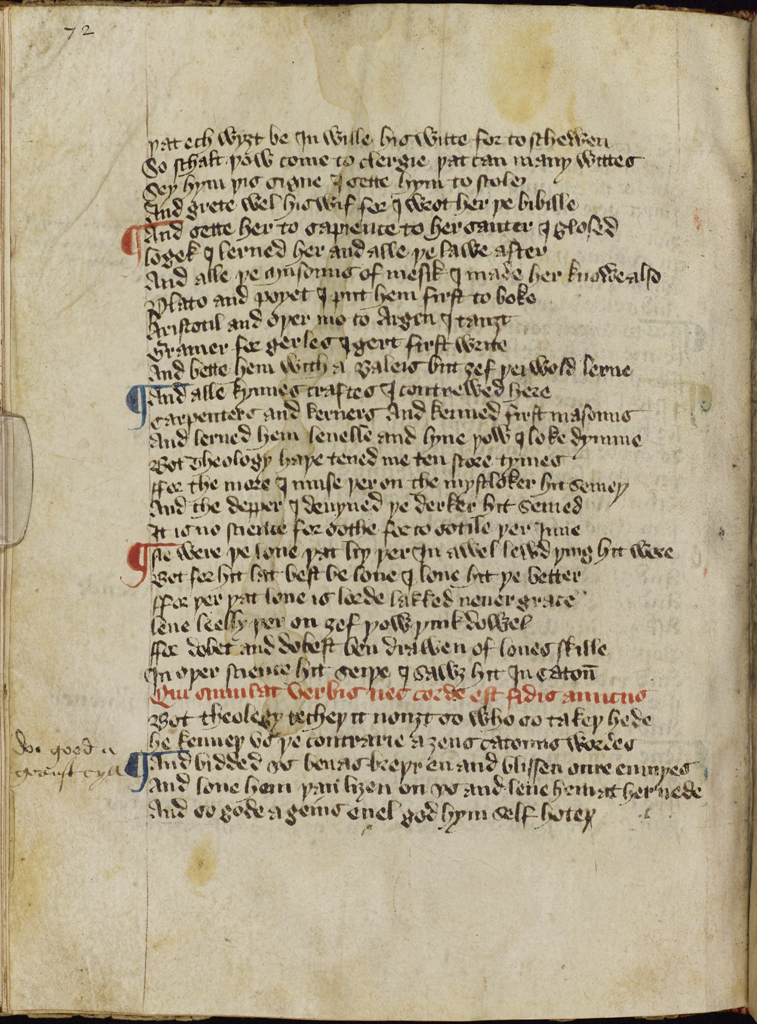 72
þat ech wyȝt be In wille his witte for to schewen
So schalt þow come to clergie þat can many wittes
Sey hym þis signe I sette hym to scole
And grete wel his wif for I wrot her þe bibille
And sette her to sapience to her sauter I glosed
logek I lerned her and alle þe lawe after
And alle þe musouns of mesik I made her knowe also
Plato and poyet I put hem first to boke
Aristotil and oþer mo to Argen I tauȝt
Gramer for gerles I gert first write
And bette hem with a baleis but ȝef þei wold lerne
And alle kynnes craftes I contrewed here
Carpenters and kervers And kenned first masouns
And lerned hem levelle and lyne þow I loke dymme
Bot Theology haþe tened me ten score tymes
ffor the more I muse þer on the mystloker hit semeþ
And the depper I devyned þe derker hit semed
It is no science for sothe for to sotile þer Inne
Ne were þe love þat liþ þer In a wel lewd þing hit were
Bot for hit lat best be love I love hit þe better
ffor þer þat love is lorde lakked never grace
leve lelly þer on ȝef þow þink dowel
ffor dobet and dobest ben drawen of loves skille
In oþer science hit seiþe I sawȝ hit In catoun
Qui simulat verbis nec corde est fidis amicus
Bot theology techeþ it nouȝt so who so takeþ hede
he kenneþ vs þe contrarie aȝens catouns wordes
And bidded vs ben as breþren and blissen oure enmyes
And love hem þat liȝen on vs and lene hem at her nede
And so gode agens evel god hym self hoteþ
Do good a
geinst evyll